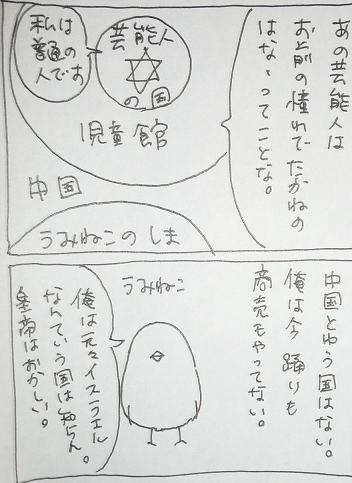 あの芸能人は
お前の憧れでたかねの
はな、ってことな。
芸能人
の国
私は
普通の
人です
児童館
中国
うみねこのしま
中国とゆう国はない。
俺は今踊りも
商売もやってない。
うみねこ
俺は元々イスラエル
なんていう国は知らん。
皇帝はおかしい。